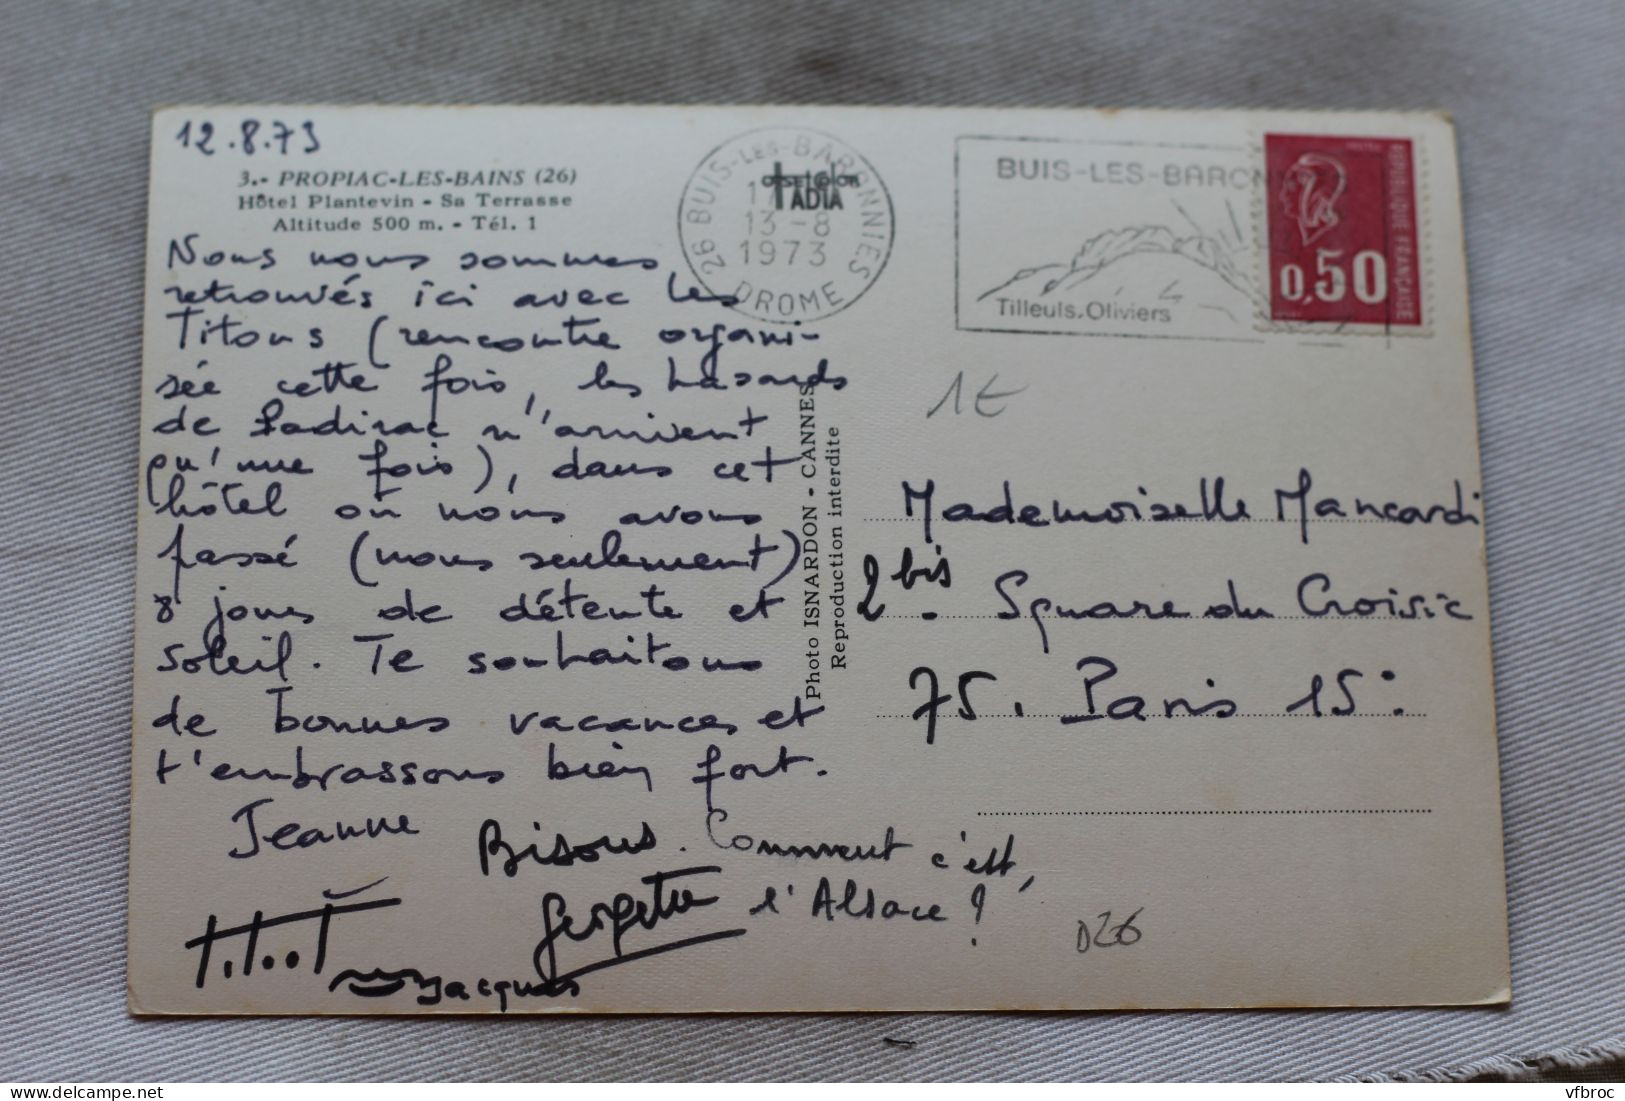 12.8.73
3.- PROPIAC-LES-BAINS (26)
Hôtel Plantevin - Sa Terrasse
Altitude 500 m. - Tél. 1
Nous nous sommes
retrouvés ici avec les
Titous (rencontre organi-
sée cette fois, les hasards
de Padirac n'arrivent
qu'une fois), dans cet
hôtel où nous avons
passé (nous seulement)
8 jours de détente et
soleil. Te souhaitons
de bonnes vacances et
t'embrassons bien fort.
Jeanne
Bisous. Comment c'est,
l'Alsace ?
Georgette
Titou
Jacques
Photo ISNARDON - CANNES
Reproduction interdite
26 BUIS-LES-BARONNIES
17
13-8
1973
DROME
ADIA
BUIS-LES-BARONNIES
Tilleuls. Oliviers
REPUBLIQUE FRANÇAISE
0,50
1€
Mademoiselle Mancardi
2 bis. Square du Croisic
75. Paris 15e
D26
vfbroc